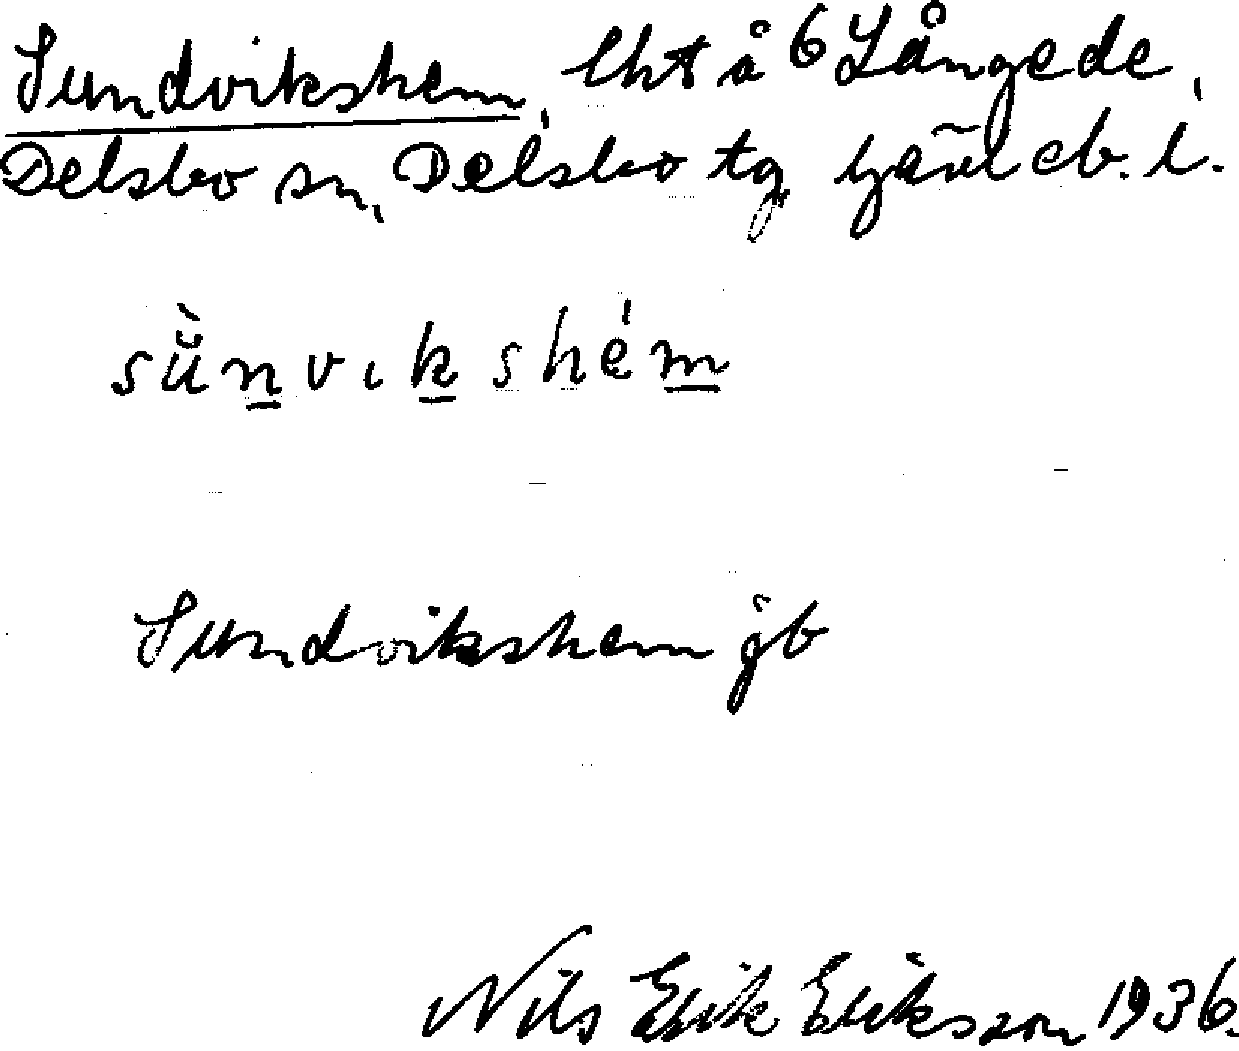 Sundvikshem, lht å 6 Långede,
Delsbo sn, Delsbo tg Gävleb. l.
sǜn̲vɩk̲shém̲
Sundvikshem jb
Nils Erik Eriksson 1936.